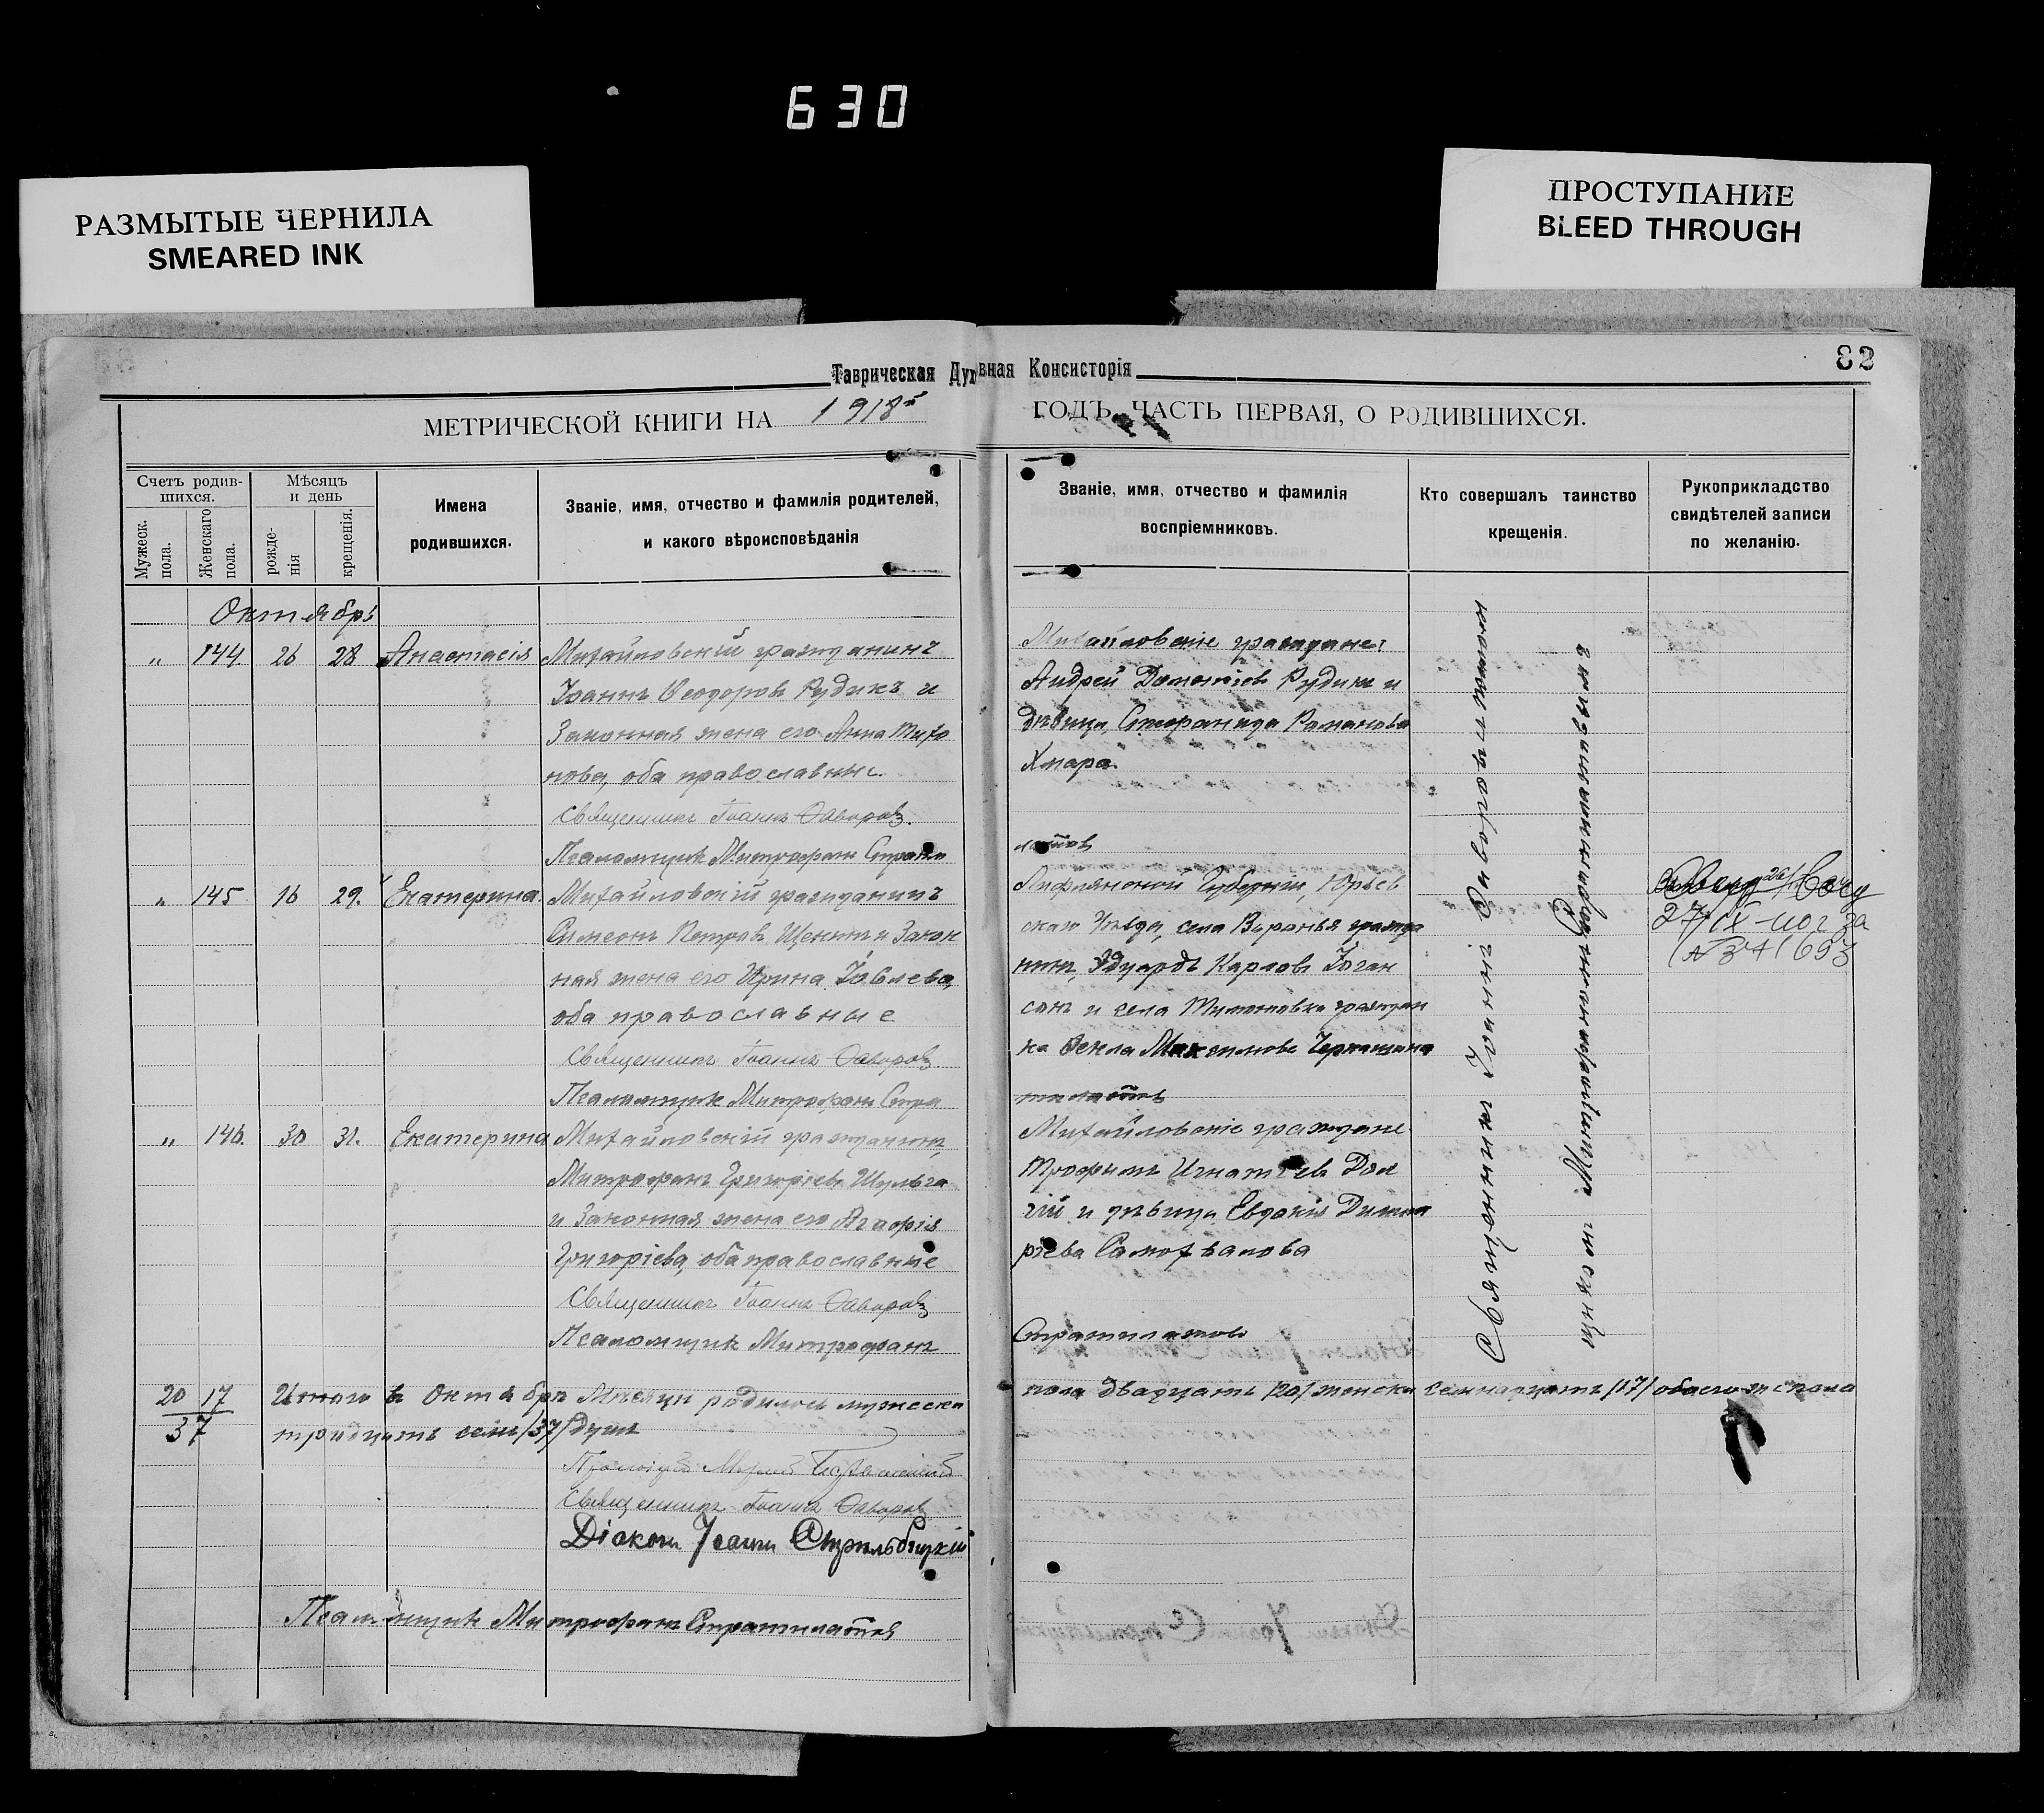 630
РАЗМЫТЫЕ ЧЕРНИЛА
SMEARED INK
ПРОСТУПАНИЕ
BLEED THROUGH
82
Таврическая Духовная Консисторія
МЕТРИЧЕСКОЙ КНИГИ НА 1918й ГОДЪ, ЧАСТЬ ПЕРВАЯ, О РОДИВШИХСЯ.
Счетъ родив-
шихся.
Мужеск.
пола.
Женскаго
пола.
Мѣсяцъ
и день
рожде-
нія
крещенія.
Имена
родившихся.
Званіе, имя, отчество и фамилія родителей,
и какого вѣроисповѣданія
Званіе, имя, отчество и фамилія
воспріемниковъ.
Кто совершалъ таинство
крещенія.
Рукоприкладство
свидѣтелей записи
по желанію.
Октябрь
„ 144. 26 28 Анастасія
Михайловскій гражданинъ
Іоаннъ Ѳеодоровъ Рудикъ и
Законная жена его Анна Тихо
нова, оба православные.
Священникъ Іоаннъ Ѳаворовъ.
Псаломщикъ Митрофанъ Страти
Михайловскіе граждане:
Андрей Дометіевъ Рудикъ и
дѣвица Стефанида Романова
Хмара.
латовъ
„ 145 16 29. Екатерина.
Михайловскій гражданинъ
Симеонъ Петровъ и Закон
ная жена его Ирина Іовлева,
оба православные
Священникъ Іоаннъ Ѳаворовъ
Псаломщикъ Митрофанъ Стра
Лифлянской Губерніи, Юрьев
скаго Уѣзда, села гражда
нинъ, Эдуардъ Карловъ Іоган
сонъ и села Тимошовки граждан
ка Ѳекла Максимова
тилатовъ
27/IX
„ 146. 30 31. Екатерина
Михайловскій гражданинъ,
Митрофанъ Григоріевъ Шульга
и Законная жена его Агафія
Григоріева, оба православные
Священникъ Іоаннъ Ѳаворовъ
Псаломщикъ Митрофанъ
Михайловскіе граждане
Трофимъ Игнатіевъ Дол
гій и дѣвица Евдокія Димит
ріева Самохвалова
Стратилатовъ
Священникъ Іоаннъ Ѳаворовъ
съ псаломщикомъ Митрофаномъ Стратилатовымъ
20 17
37
Итого въ Октябрѣ Мѣсяцѣ родилось мужеска пола двадцать /20/ женска семнадцать /17/ обоего пола
тридцать семь /37/ душъ
Священникъ Іоаннъ Ѳаворовъ
Діаконъ Іоаннъ Стрильбицкій
Псаломщикъ Митрофанъ Стратилатовъ